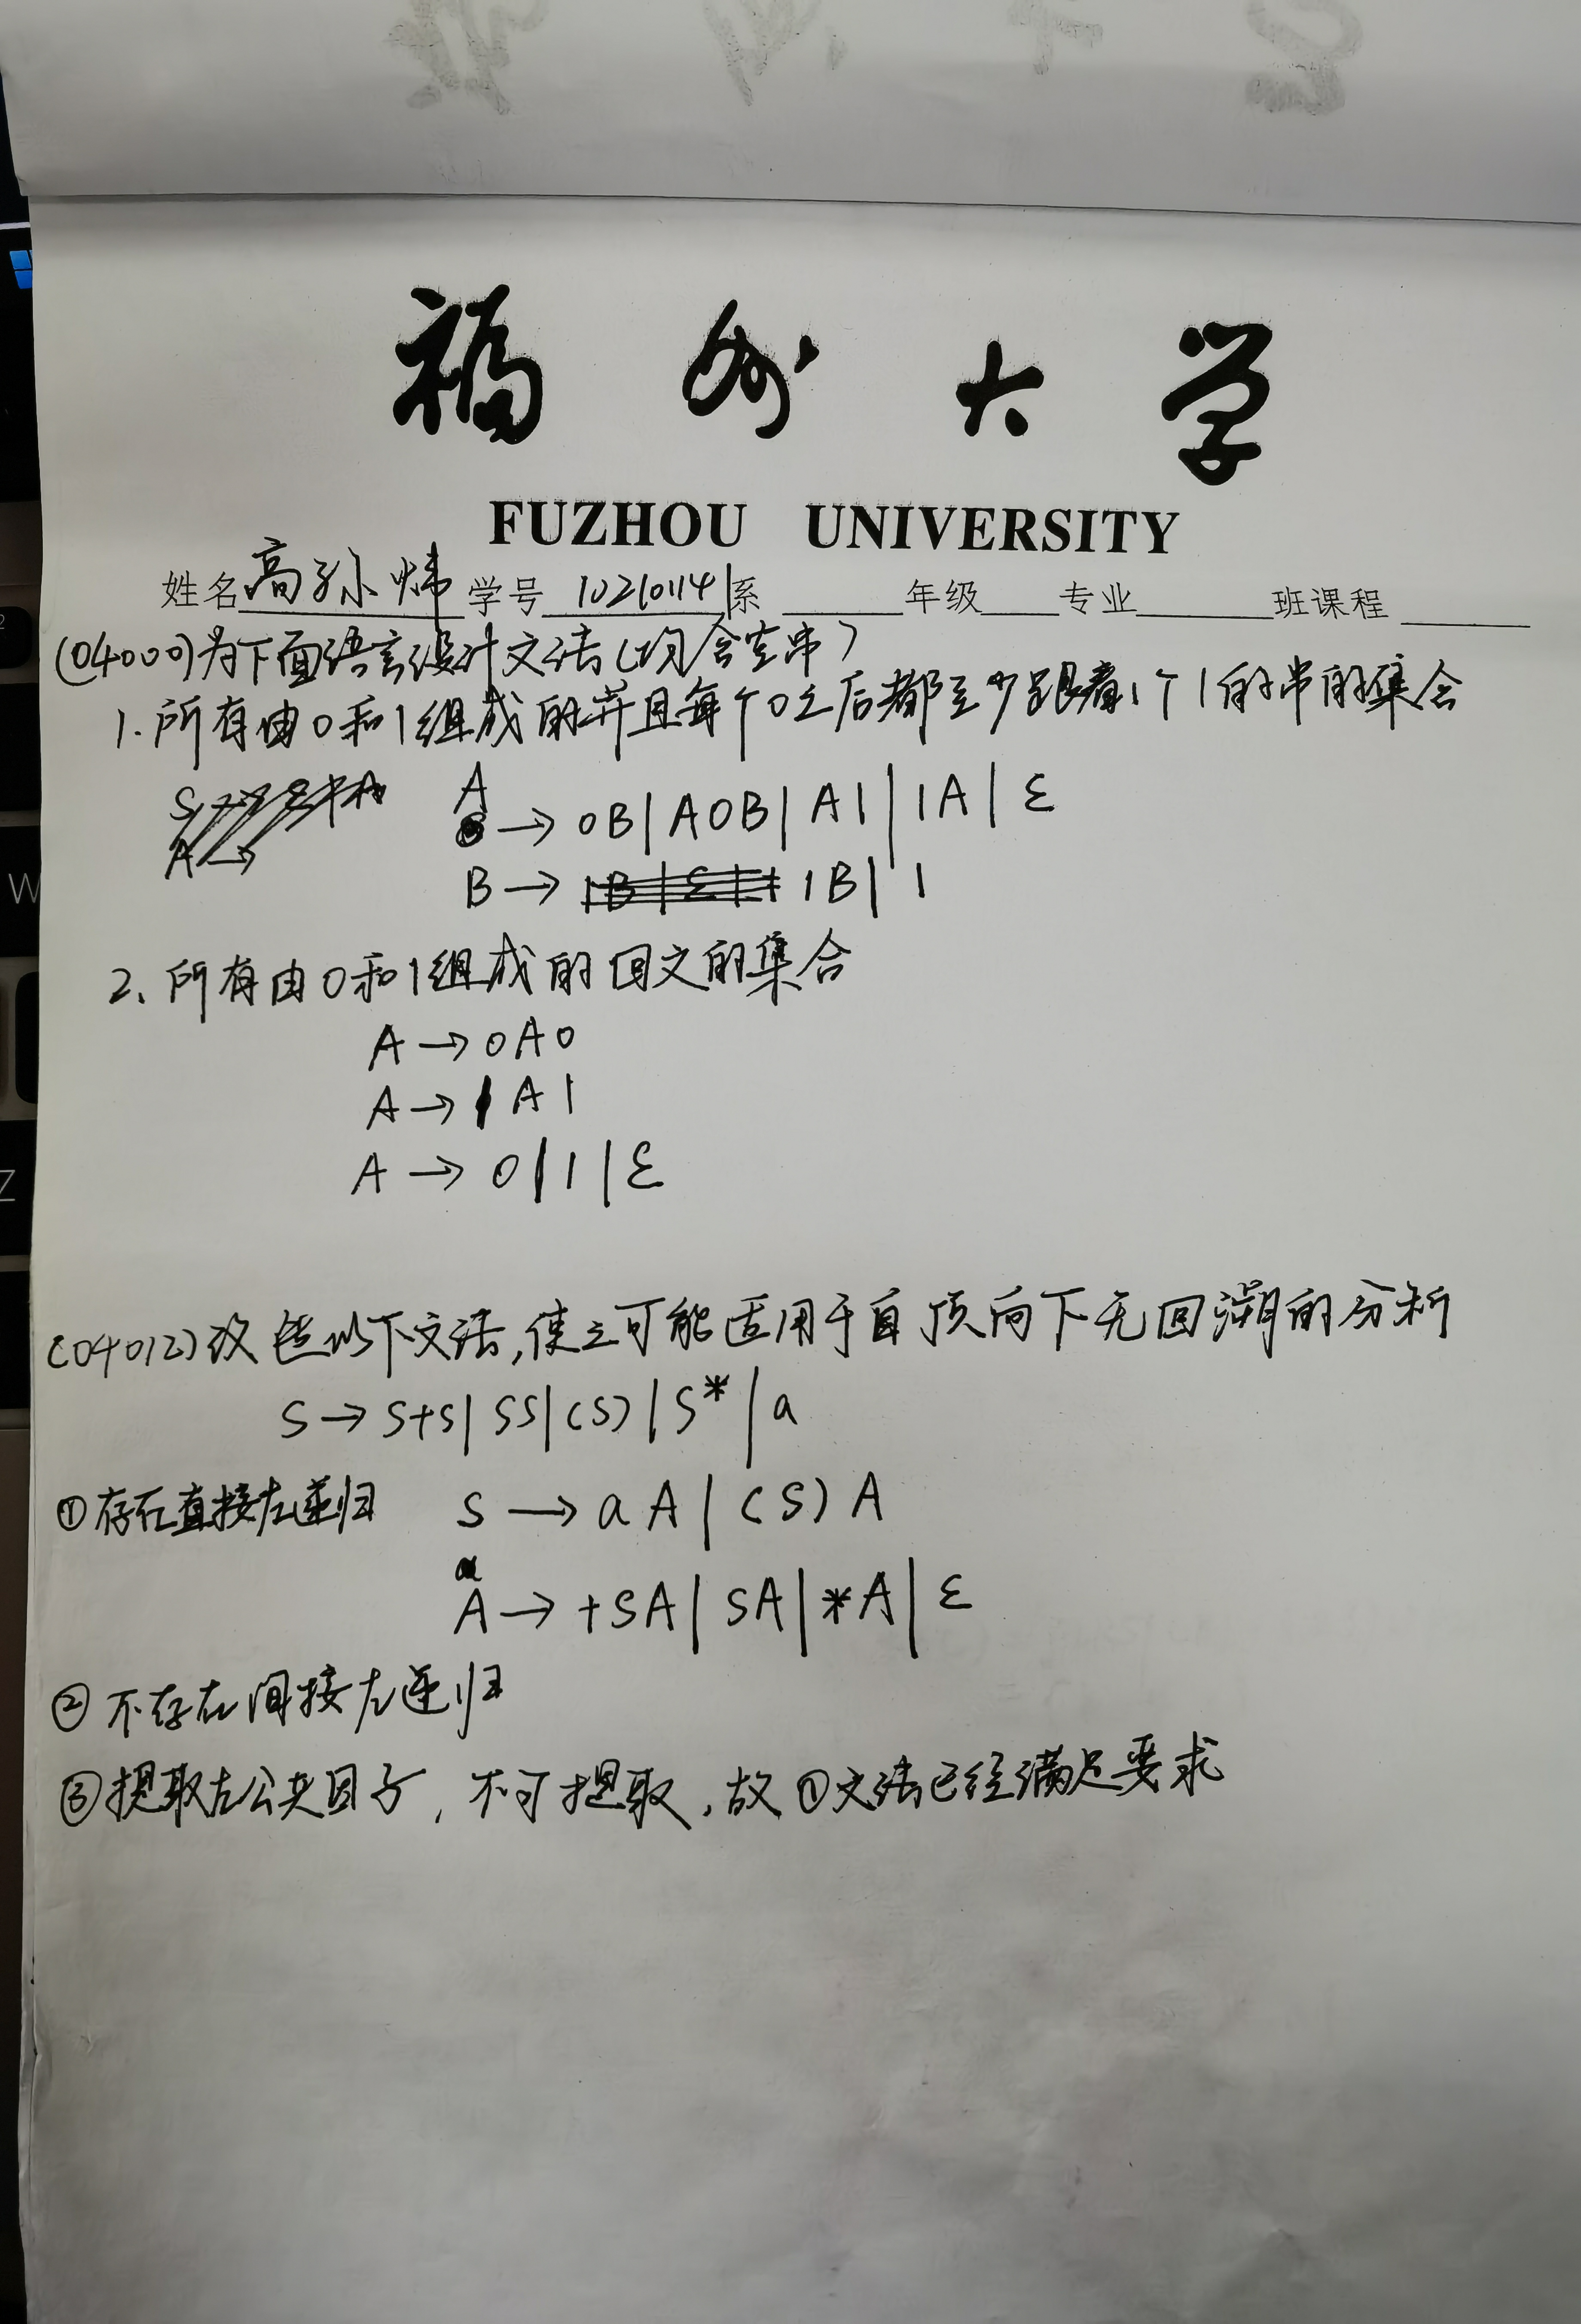 福州大学
FUZHOU UNIVERSITY
姓名高孙炜 学号 102101141 系 年级 专业 班课程
(04000)为下面语言设计文法(均含空串)
1. 所有由0和1组成的并且每个0之后都至少跟着1个1的串的集合
A → 0B | A0B | A1 | 1A | ε
B → 1B | 1
2、所有由0和1组成的回文的集合
A → 0A0
A → 1A1
A → 0 | 1 | ε
(04012)改造以下文法,使之可能适用于自顶向下无回溯的分析
S → S+S | SS | (S) | S* | a
①存在直接左递归 S → aA | (S)A
A → +SA | SA | *A | ε
② 不存在间接左递归
③提取左公共因子, 不可提取, 故①文法已经满足要求